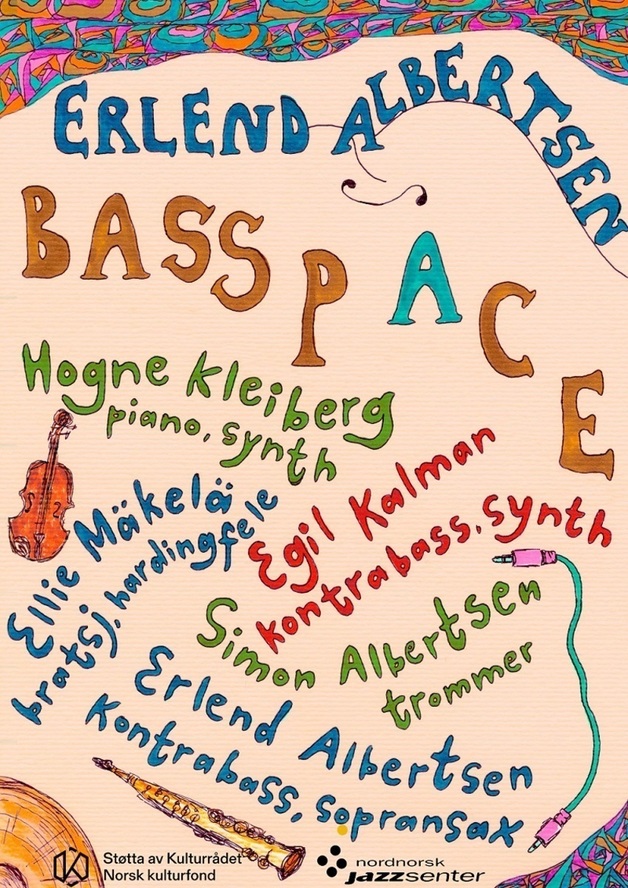 ERLEND ALBERTSEN
BASSPACE
Hogne Kleiberg
piano, synth
Egil Kalman
kontrabass, synth
Ellie Mäkelä
bratsj, hardingfele
Simon Albertsen
trommer
Erlend Albertsen
kontrabass, sopransax
Støtta av Kulturrådet
Norsk kulturfond
nordnorsk
jazzsenter